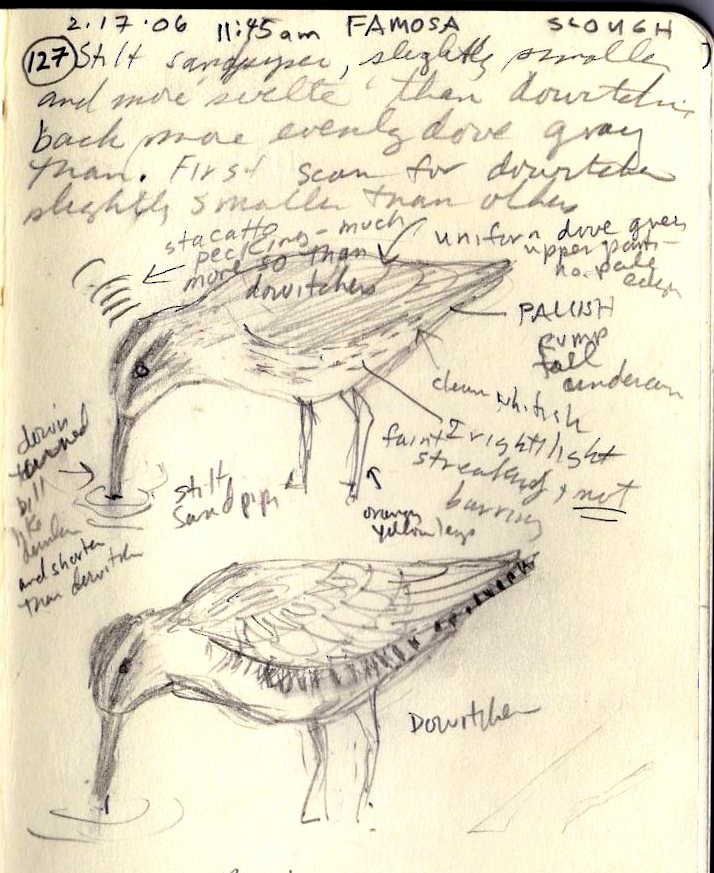 2.17.06 11:45am FAMOSA SLOUGH
127 Stilt sandpiper, slightly smaller
and more svelte than dowitcher
back more evenly dove gray
than. First scan for dowitcher
slightly smaller than others
stacatto
peckings - much
more so than
dowitchers
uniform dove grey
upper parts -
no pale
edges
PALLISH
rump
fall
clean whitish
faint light
streaking, not
barring
down
turned
bill
like
dunlin
and shorter
than dowitcher
stilt
sandpiper
orangy
yellow legs
Dowitcher